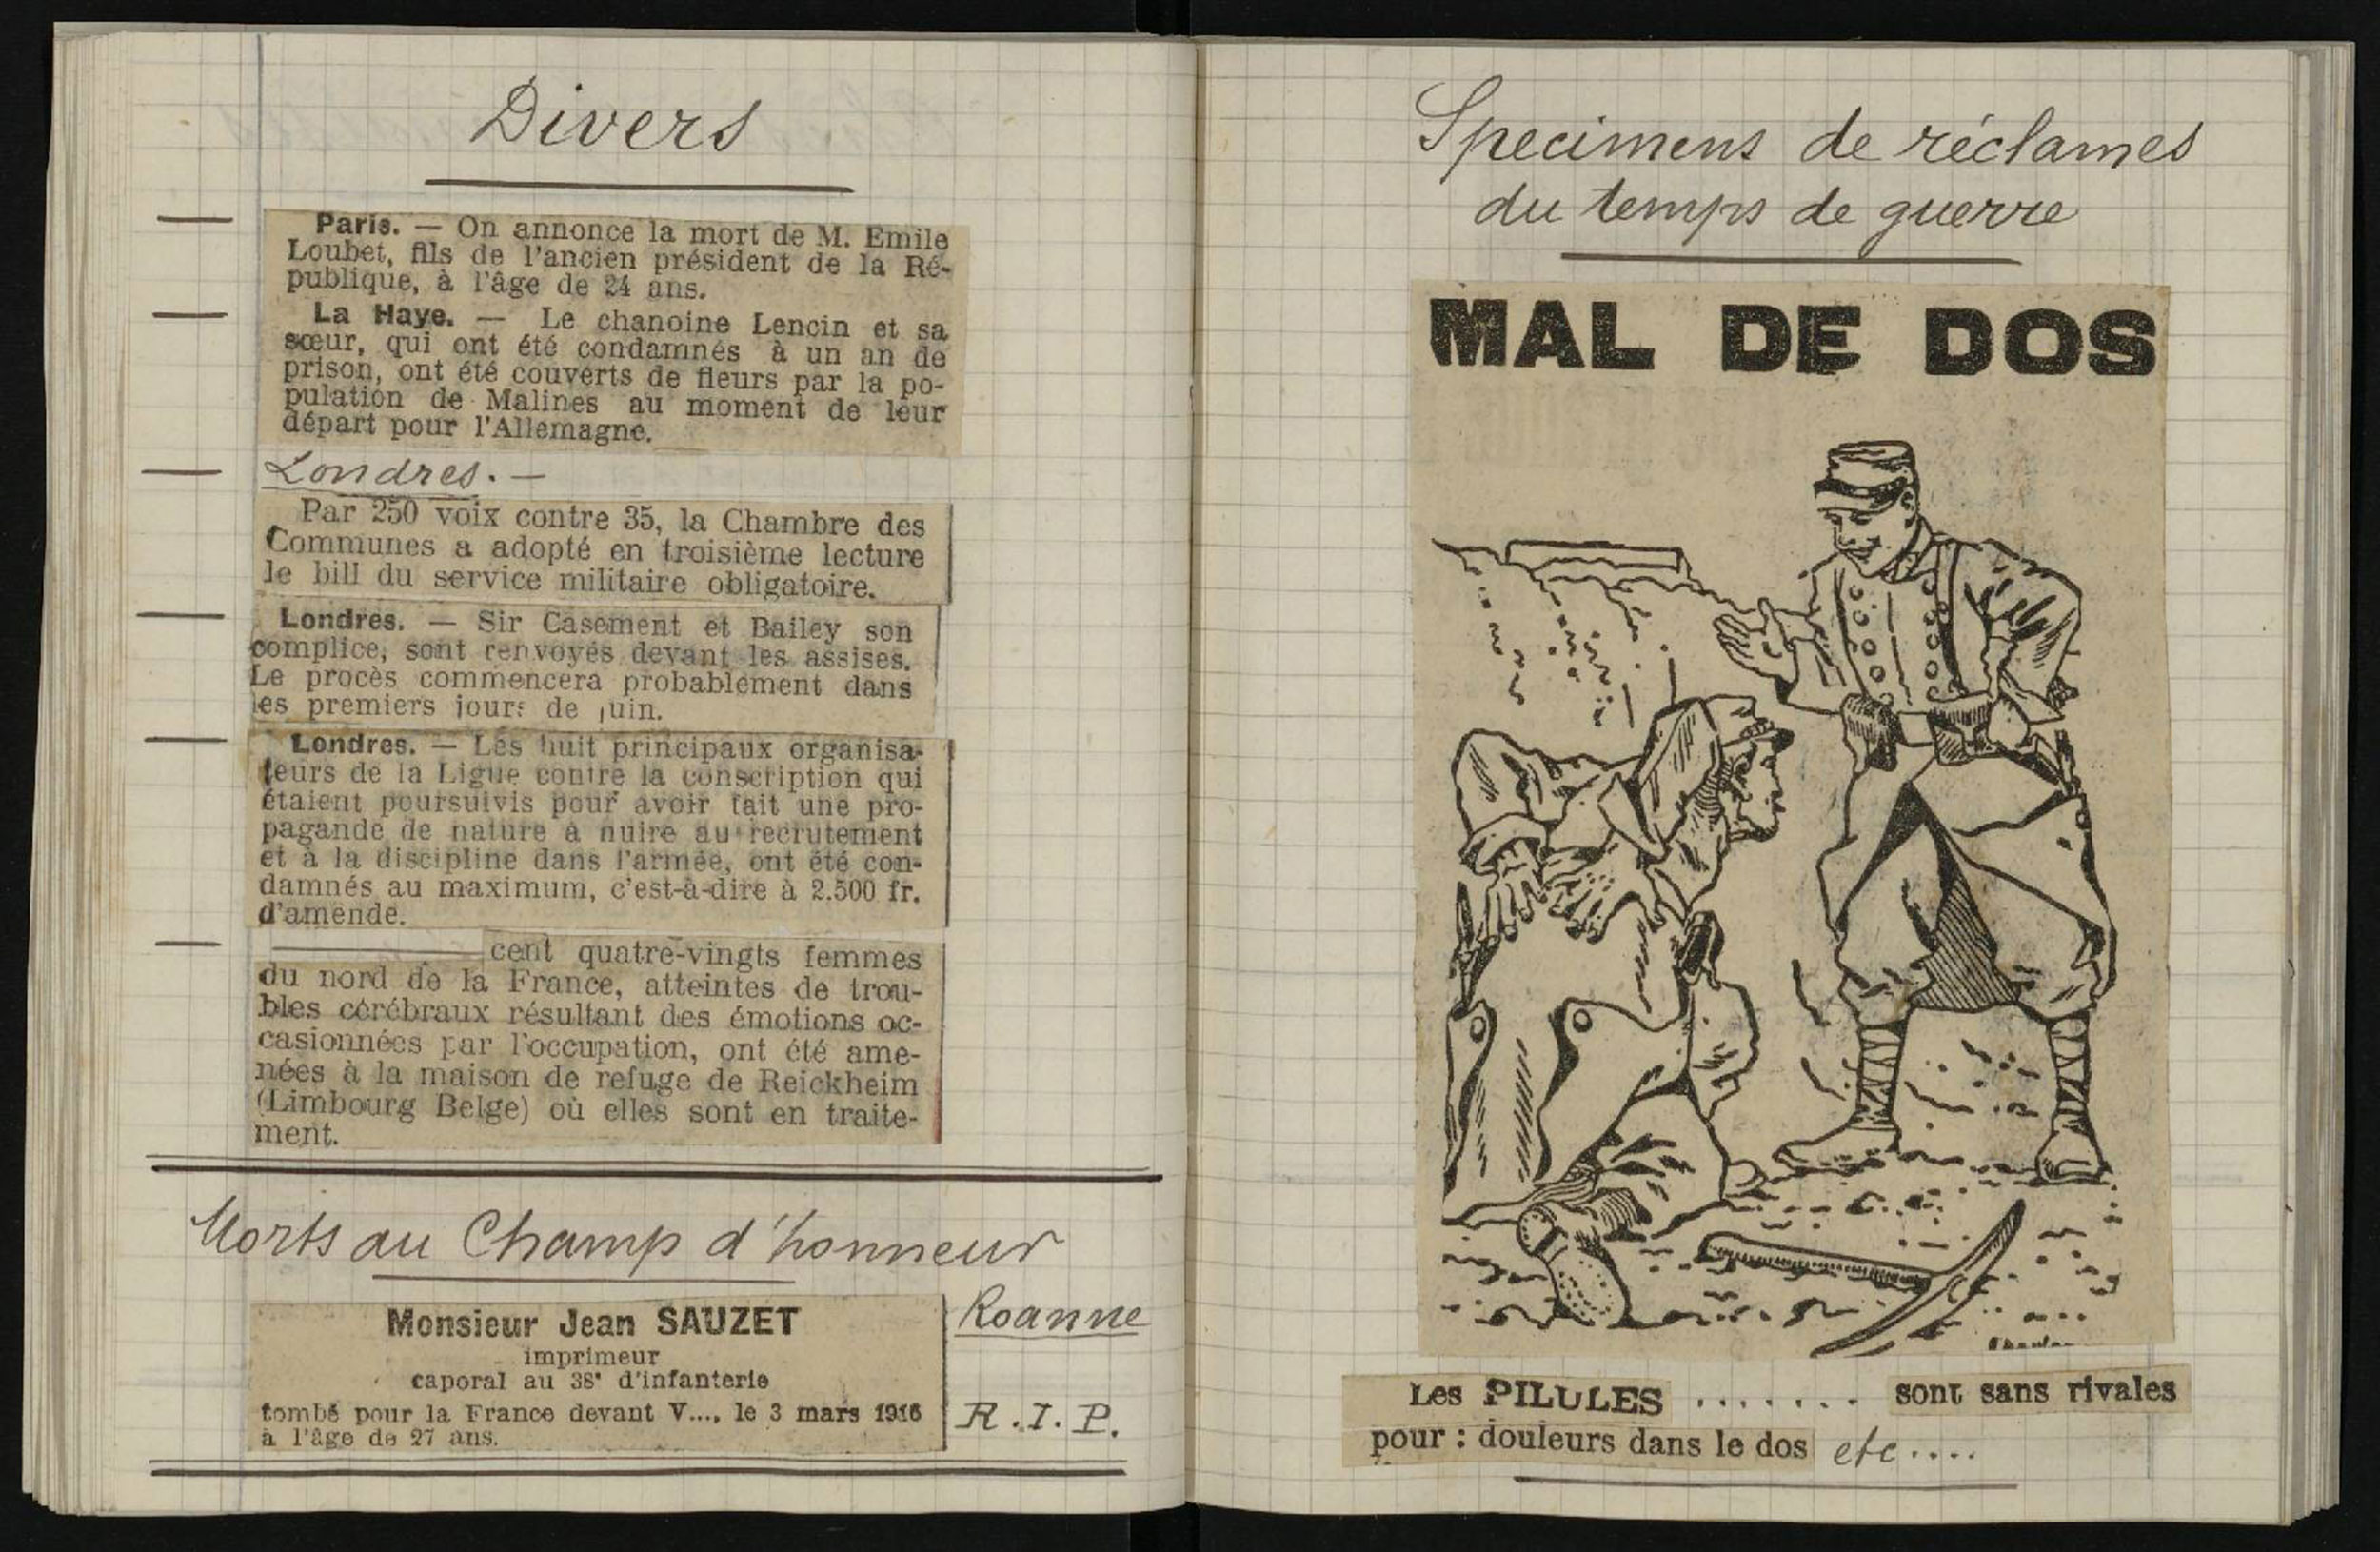 Divers
Paris. — On annonce la mort de M. Emile
Loubet, fils de l'ancien président de la Ré-
publique, à l'âge de 24 ans.
La Haye. — Le chanoine Lencin et sa
sœur, qui ont été condamnés à un an de
prison, ont été couverts de fleurs par la po-
pulation de Malines au moment de leur
départ pour l'Allemagne.
Londres. —
Par 250 voix contre 35, la Chambre des
Communes a adopté en troisième lecture
le bill du service militaire obligatoire.
Londres. — Sir Casement et Bailey son
complice, sont renvoyés devant les assises.
Le procès commencera probablement dans
les premiers jours de juin.
Londres. — Les huit principaux organisa-
teurs de la Ligue contre la conscription qui
étaient poursuivis pour avoir fait une pro-
pagande de nature à nuire au recrutement
et à la discipline dans l'armée, ont été con-
damnés au maximum, c'est-à-dire à 2.500 fr.
d'amende.
cent quatre-vingts femmes
du nord de la France, atteintes de trou-
bles cérébraux résultant des émotions oc-
casionnées par l'occupation, ont été ame-
nées à la maison de refuge de Reickheim
(Limbourg Belge) où elles sont en traite-
ment.
Morts au Champ d'honneur
Monsieur Jean SAUZET
imprimeur
caporal au 38e d'infanterie
tombé pour la France devant V..., le 3 mars 1916
à l'âge de 27 ans.
Roanne
R.I.P.
Specimens de réclames
du temps de guerre
MAL DE DOS
Les PILULES ....... sont sans rivales
pour : douleurs dans le dos etc....